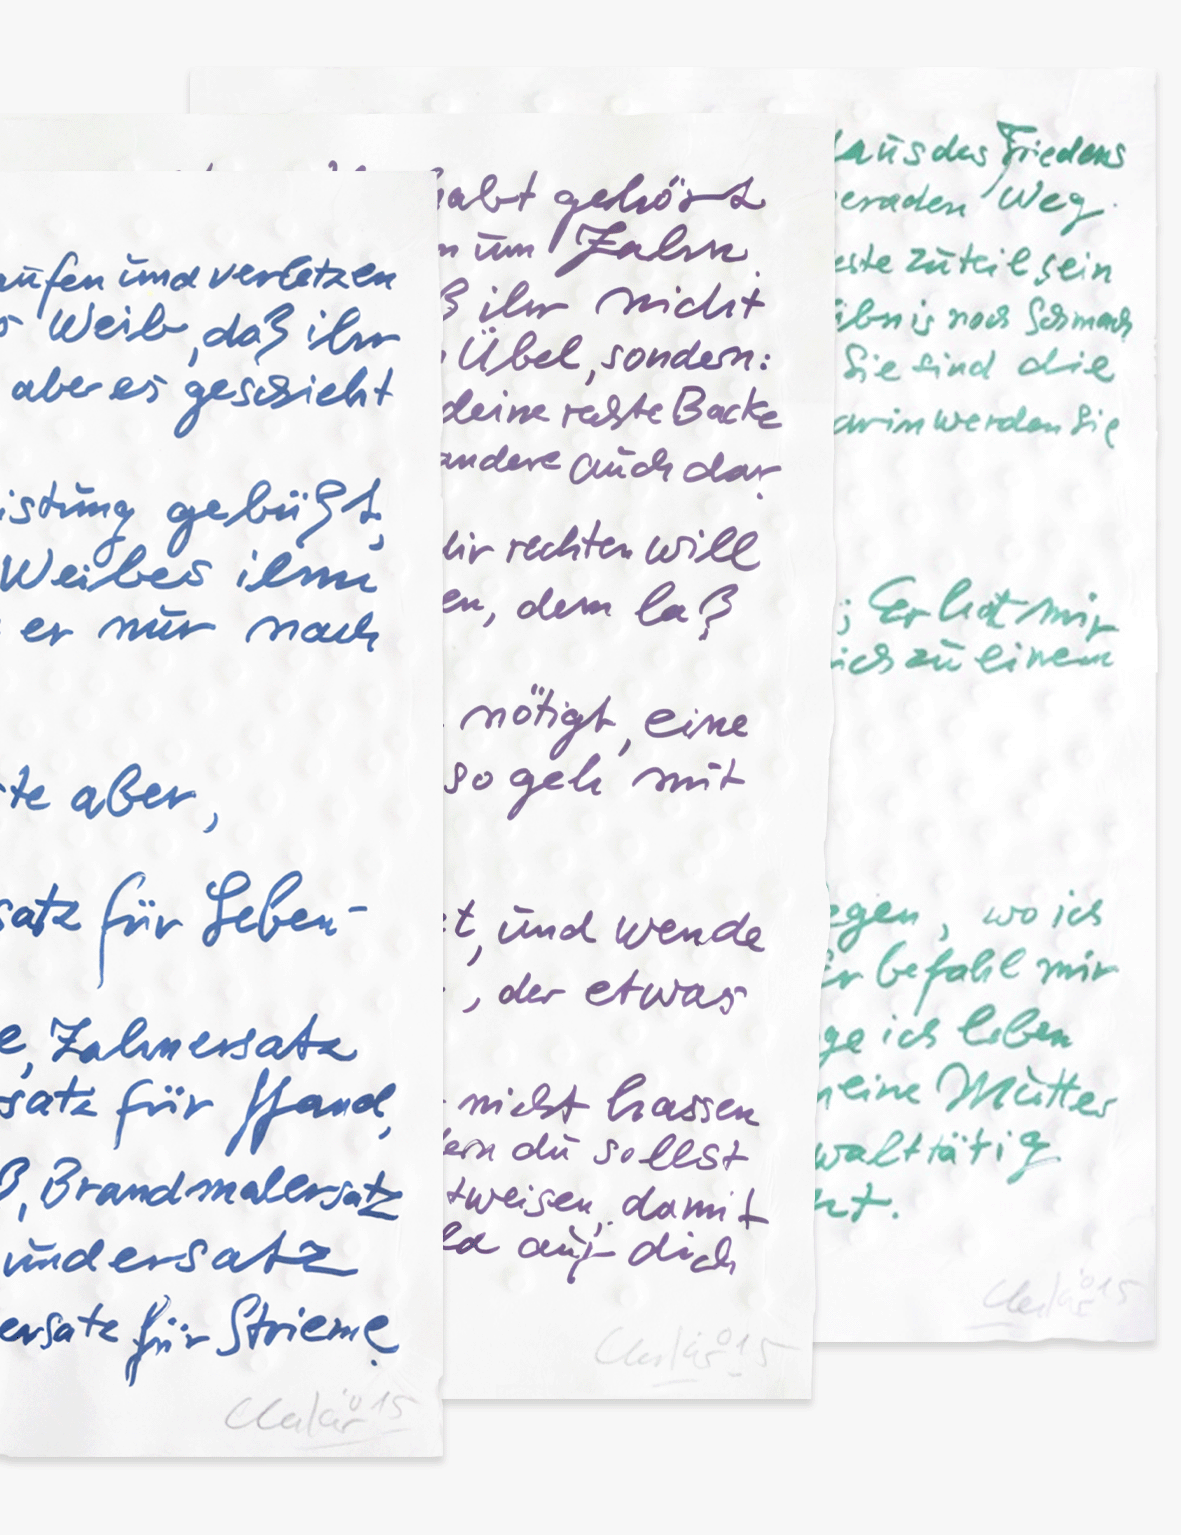 aufen und verletzen
Weib, daß ihr
aber es geschieht
istung gebüßt,
Weibes ihm
er nur nach
te aber,
satz für Leben-
e, Zahnersatz
satz für Hand,
ß, Brandmalersatz
undersatz
ersatz für Strieme.
'015
habt gehört
n um Zahn.
ß ihr nicht
Übel, sondern:
deine rechte Backe
andere auch dar.
dir rechten will
en, dem laß
nötigt, eine
so geh mit
et, und wende
, der etwas
nicht hassen
ern du sollst
tweisen, damit
ld auf dich
'015
Haus des Friedens
eraden Weg.
este zuteil sein
ibnis noch Schmach
Sie sind die
arin werden Sie
; Er hat mir
ich zu einem
egen, wo ich
Er befahl mir
ge ich leben
meine Mutter
walttätig
ht.
'015